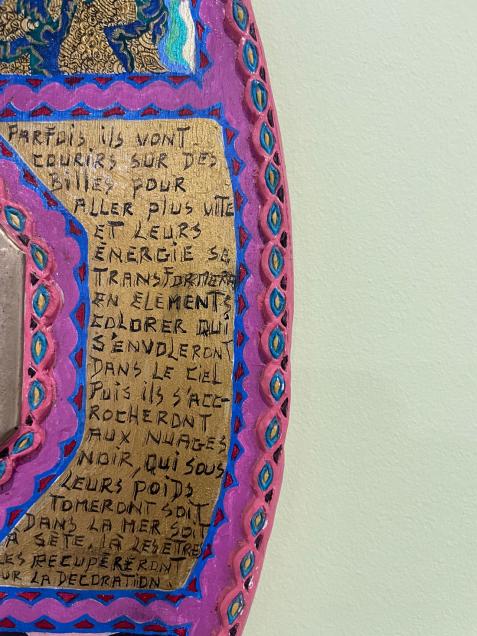 PARFOIS ILS VONT
COURIRS SUR DES
BILLES POUR
ALLER PLUS VITE
ET LEURS
ÉNERGIE SE
TRANSFORMERA
EN ELÉMENTS
COLORER QUI
S'ENVOLERONT
DANS LE CIEL
PUIS ILS S'ACC-
ROCHERONT
AUX NUAGES
NOIR, QUI SOUS
LEURS POIDS
TOMERONT SOIT
DANS LA MER SOIT
A SÈTE. LÀ LES ETRES
LES RECUPÉRERONT
LA DECORATION.